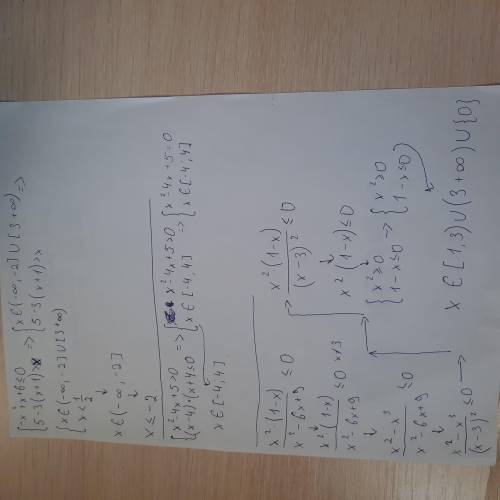 {-x²+x+6≤0 => {x∈(-∞,-2]∪[3+∞) =>
{5-3(x+1)>x {5-3(x+1)>x
{x∈(-∞,-2]∪[3+∞)
{x<1/2
↓
x∈(-∞,-2]
↓
x≤-2
{x²4x+5>0 => {x²-4x+5>0 {x²-4x+5=0
{(x-4)·(x+4≤0 {x∈[-4,4] => {x∈[-4;4]
x∈[-4,4]
x²·(1-x)/x²-6x+9 ≤0
x²(1-x)/x²-6x+9 ≤0 x≠3
↓
x²-x³/x²-6x+9 ≤0
↓
x²-x³/(x-3)² ≤0 →
x²(1-x)/(x-3)² ≤0
x²(1-x)≤0
↓ ↓
{x²≥0 → {x²≥0
{1-x≤0 {1-x≤0
x∈[1,3)∪(3+∞)∪{0}